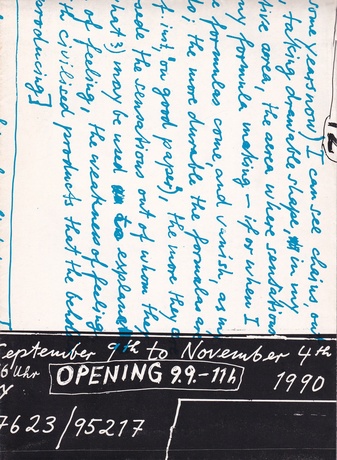 12
some years now) I can see chains, out
, taking drawable shape, in my
tive area, the area where sensations
my formula making – if or when I
e formulas come, and vanish, as
; the more durable the formulas
f. inst, on good paper), the more they
the sensations out of whom the
hat 3) may be used to explain
of feeling, the weakness of feeling
th civilised products that the
producing]
September 9th to November 4th
6 Uhr OPENING 9.9.–11h 1990
y
7623/95217